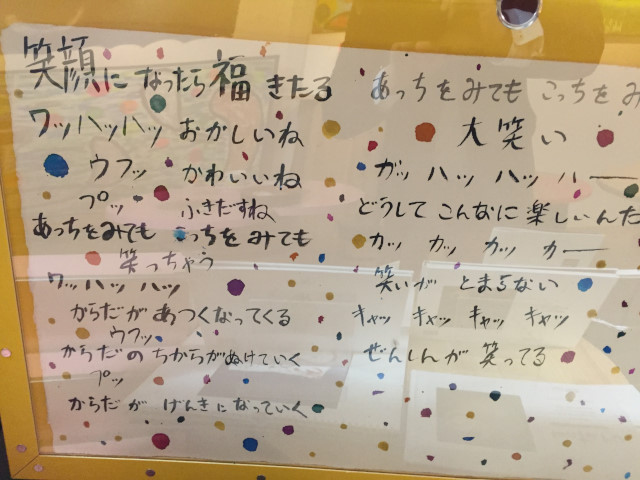 笑顔に なったら 福 きたる
ワッハッハッ おかしいね
ウフッ かわいいね
プッ ふきだすね
あっちをみても こっちを みても
笑っちゃう
ワッハッハッ
からだが あつくなってくる
ウフッ
からだの ちからがぬけていく
プッ
からだが げんきになっていく
あっちをみても こっちをみ
大笑い
ガッ ハッ ハッ ハー
どうして こんなに 楽しいんだ
カッ カッ カッ カー
笑いが とまらない
キャッ キャッ キャッ キャッ
ぜんしんが 笑ってる